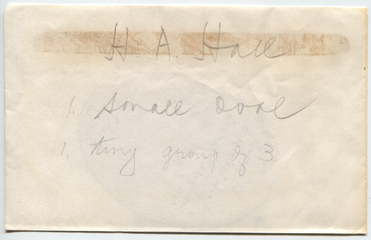 H A. Hall
1. Small oval
1. tiny group of 3